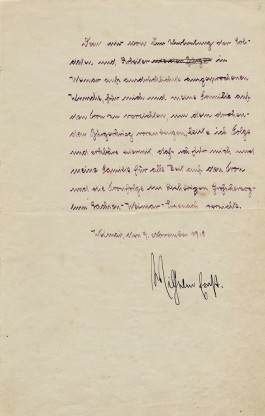 Dem mir vom Verbreitung der Sol-
daten und Arbeiter in
Weimar auf ausdrücklich ausgesprochenen
Wunsche, für mich und meine Familie auf
den Tron zu verzichten um dem drohen-
den Bürgerkrieg vorzubeugen, leiste ich Folge
und erkläre hiermit, daß ich für mich und
meine Familie für alle Zeit auf den Tron
und die Tronfolge im bisherigen Großherzog-
tum Sachsen-Weimar-Eisenach verzichte.
Weimar, den 9. November 1918
Wilhelm Ernst.